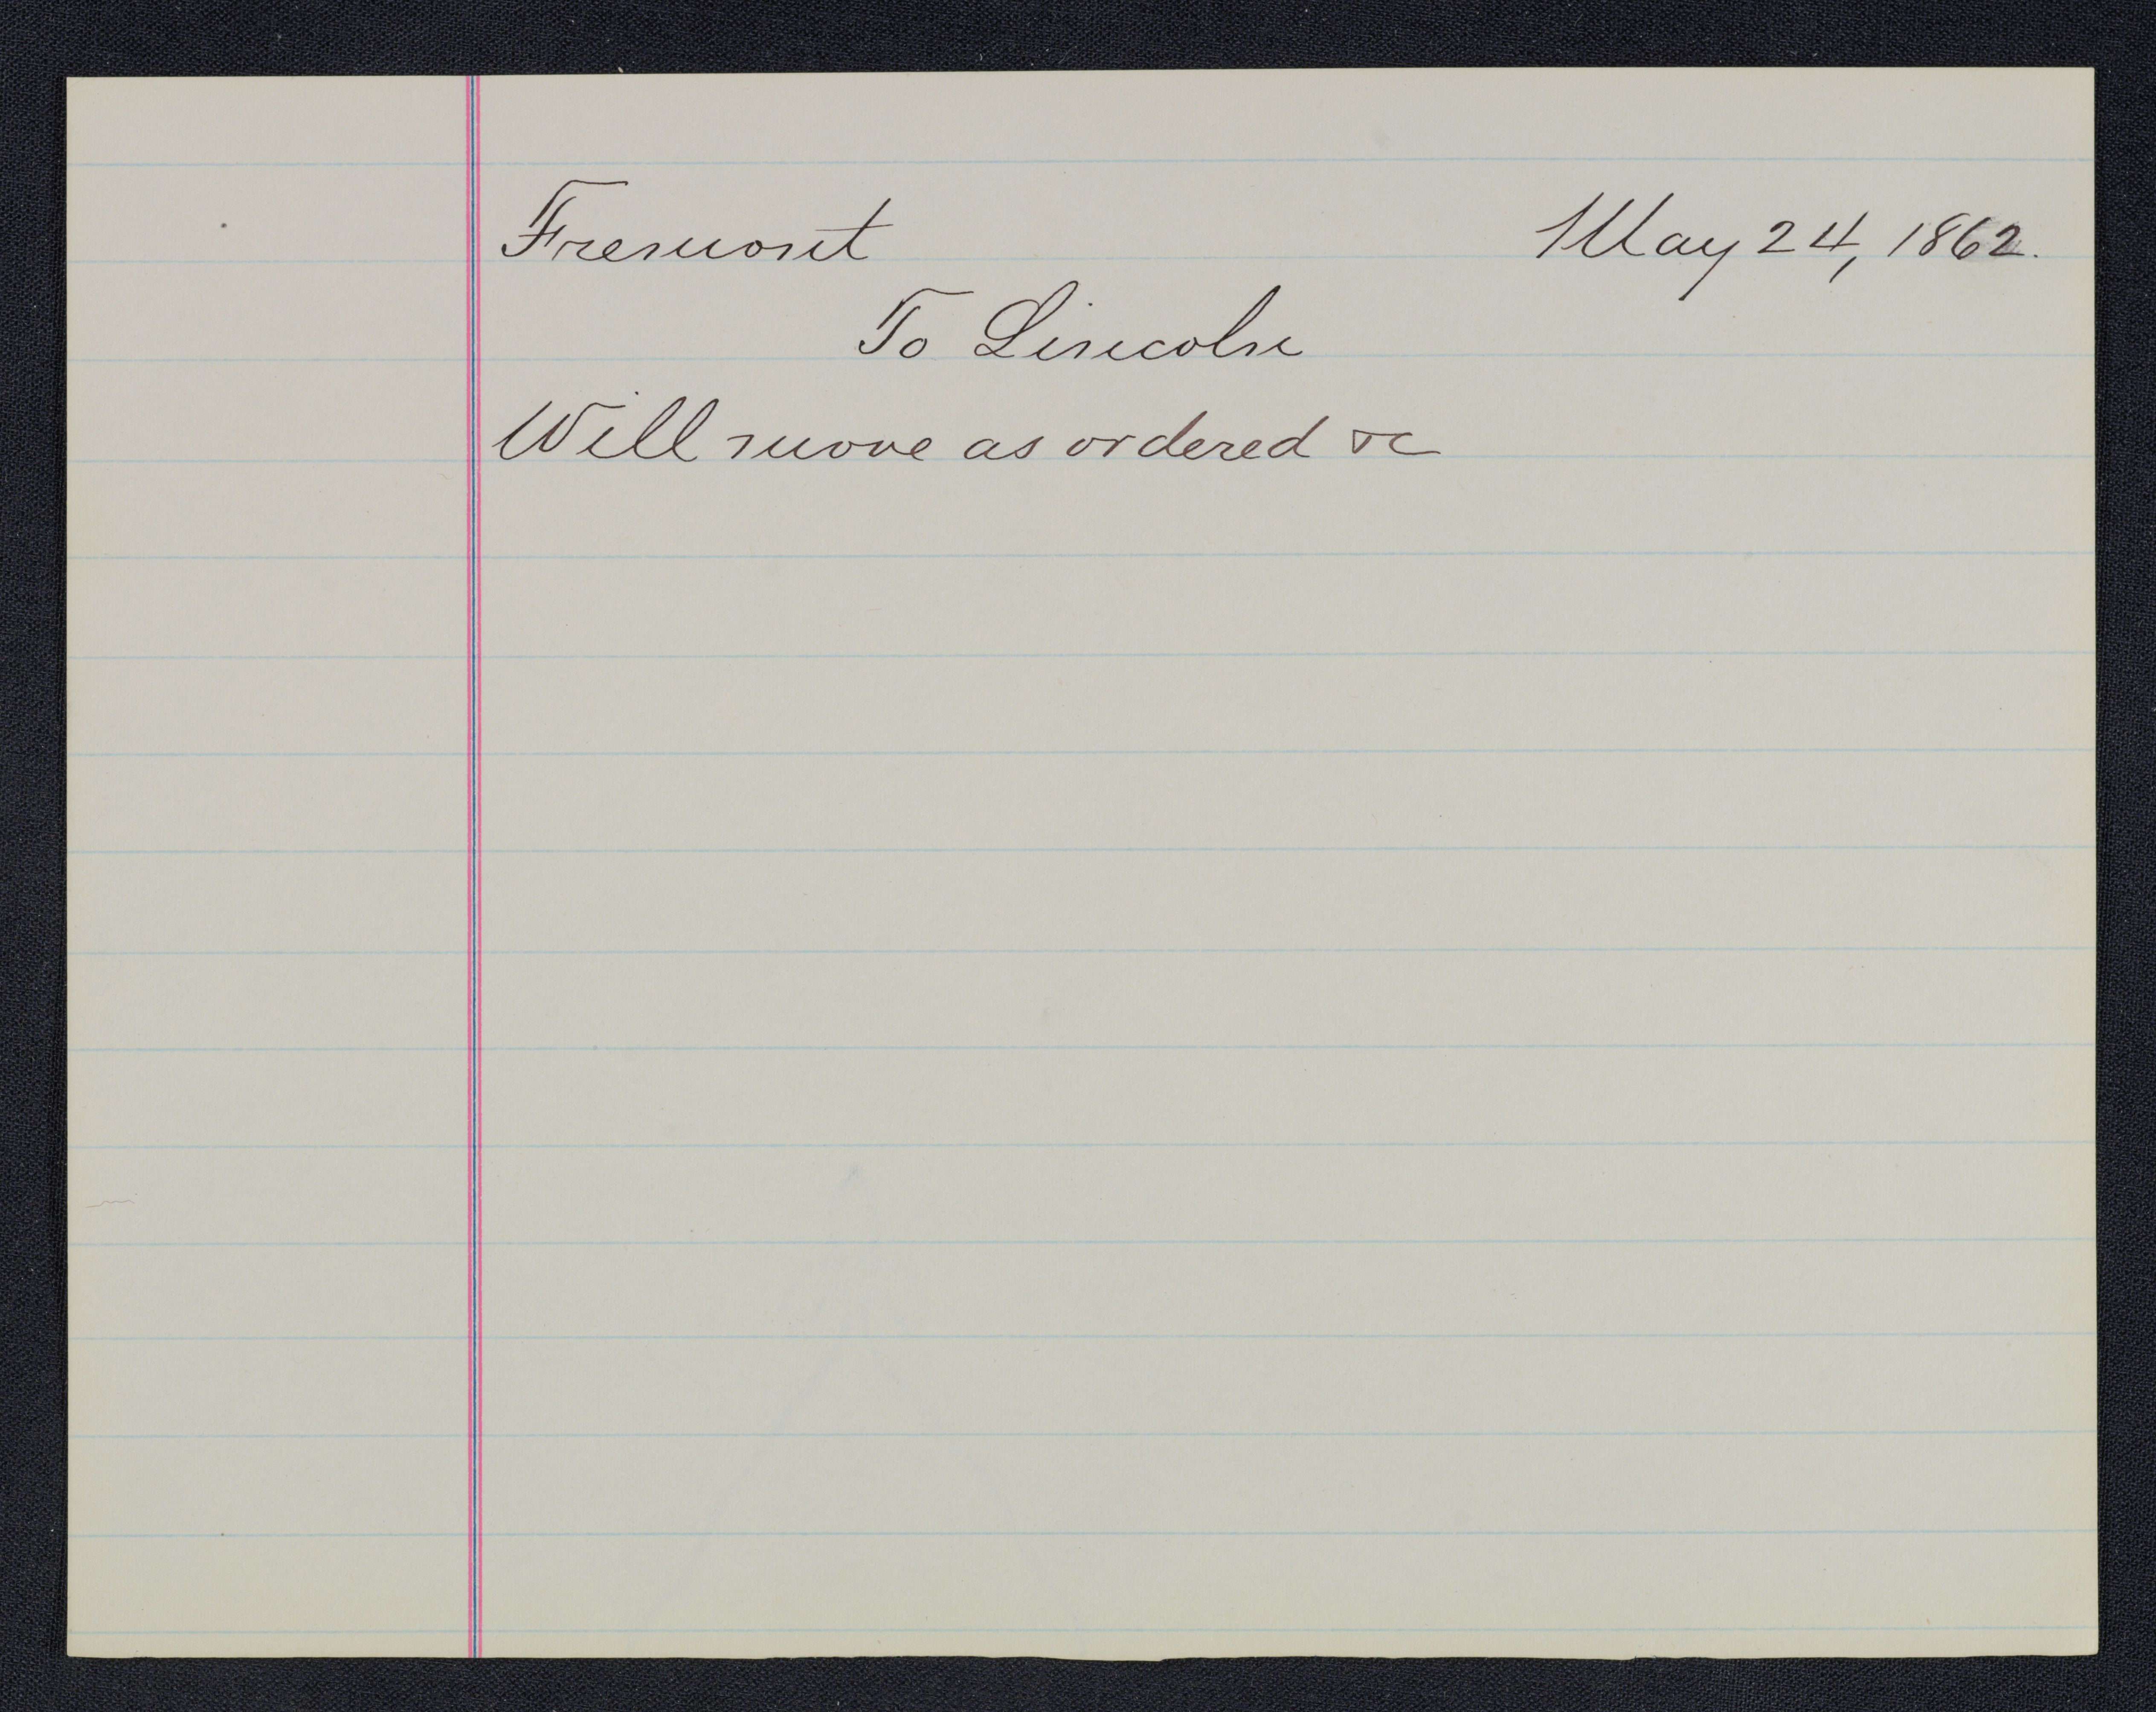 Fremont May 24, 1862.
To Lincoln
Will move as ordered &c